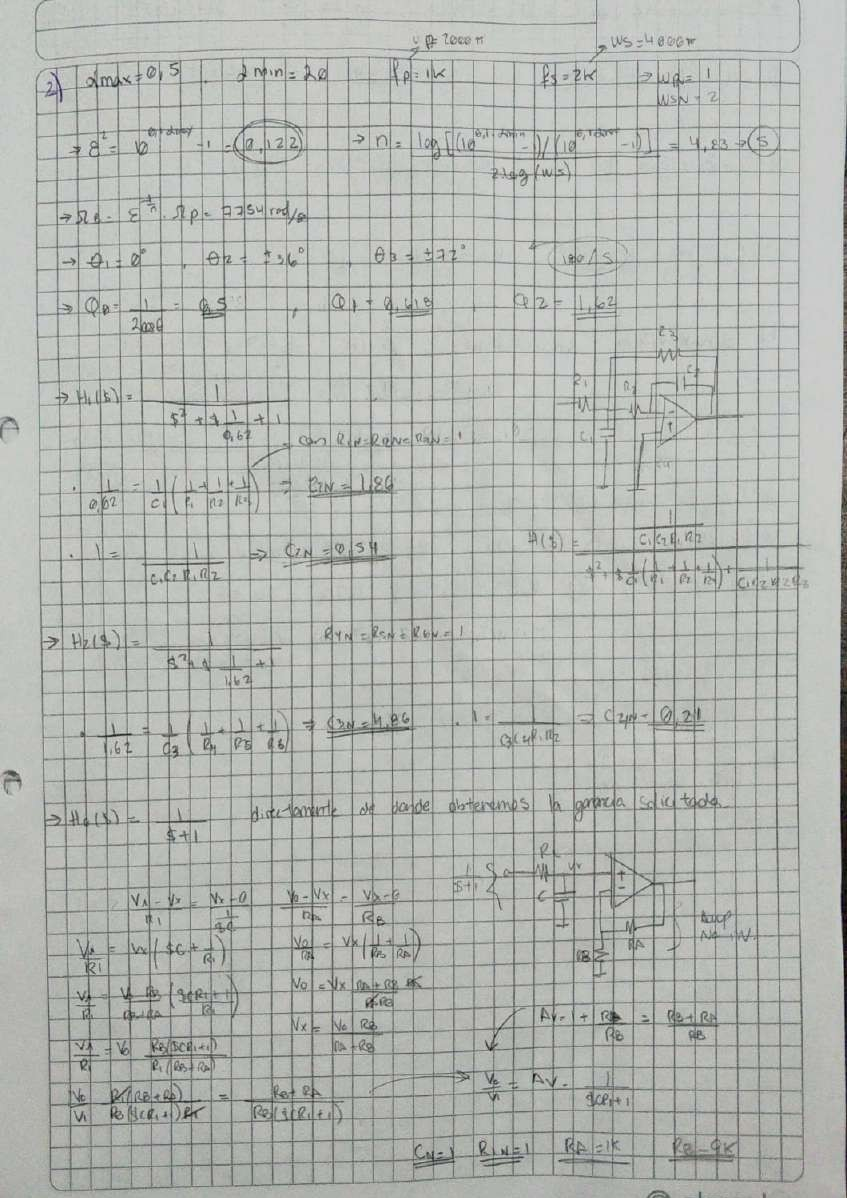 ωp=2000π ωs=4000π
2) αmax=0,5 . αmin=20 fp=1K fs=2K → ωp=1
ωsn=2
→ ε² = 10^(0,1·αmax) -1 = 0,122 → n= log[(10^(0,1·αmin) -1)/(10^(0,1·αmax) -1)] / 2log(ωs) = 4,83 → 5
→ ΩB = ε^(-1/n) · Ωp = 7754 rad/s
→ θ1=0° , θ2= ±36° , θ3=±72° 180/5
→ Q0= 1/(2cosθ) = 0,5 , Q1= 0,618 , Q2= 1,62
R3
R1 R2 C2
C1
→ H1($)= 1/($²+$ 1/0,62 +1)
con R1N=R2N=R3N=1
· 1/0,62 = 1/C1 (1/R1+1/R2+1/R3) ⇒ C1N=1,86
· 1= 1/(C1C2R1R2) ⇒ C2N=0,54
H($)= (1/(C1C2R1R2)) / ($²+$ 1/C1 (1/R1+1/R2+1/R3)+ 1/(C1C2R2R3))
→ H2($)= 1/($²+$ 1/1,62 +1) R4N=R5N=R6N=1
· 1/1,62 = 1/C3 (1/R4+1/R5+1/R6) ⇒ C3N=4,86 . 1= 1/(C3C4R1R2) ⇒ C4N=0,21
→ H0($)= 1/($+1) directamente de donde obtenemos la ganancia solicitada
1/($+1) R1 Vx
C
RA
RB
No inv.
(V1-Vx)/R1 = (Vx-0)/(1/$C) (V0-Vx)/RA = (Vx-0)/RB
V1/R1 = Vx($C+1/R1) V0/RA = Vx(1/RB+1/RA)
V1/R1 = V0 RB/(RB+RA) ($CR1+1)/R1 V0=Vx (RA+RB) RA/(RA·RB)
AV=1+ RA/RB = (RB+RA)/RB
V1/R1 = V0 RB($CR1+1)/(R1(RB+RA)) Vx = V0 RB/(RA+RB)
V0/V1 = R1(RB+RA)/(RB($CR1+1)R1) = (RB+RA)/(RB($CR1+1)) → V0/V1 = AV · 1/($CR1+1)
CN=1 R1N=1 RA=1K RB=9K